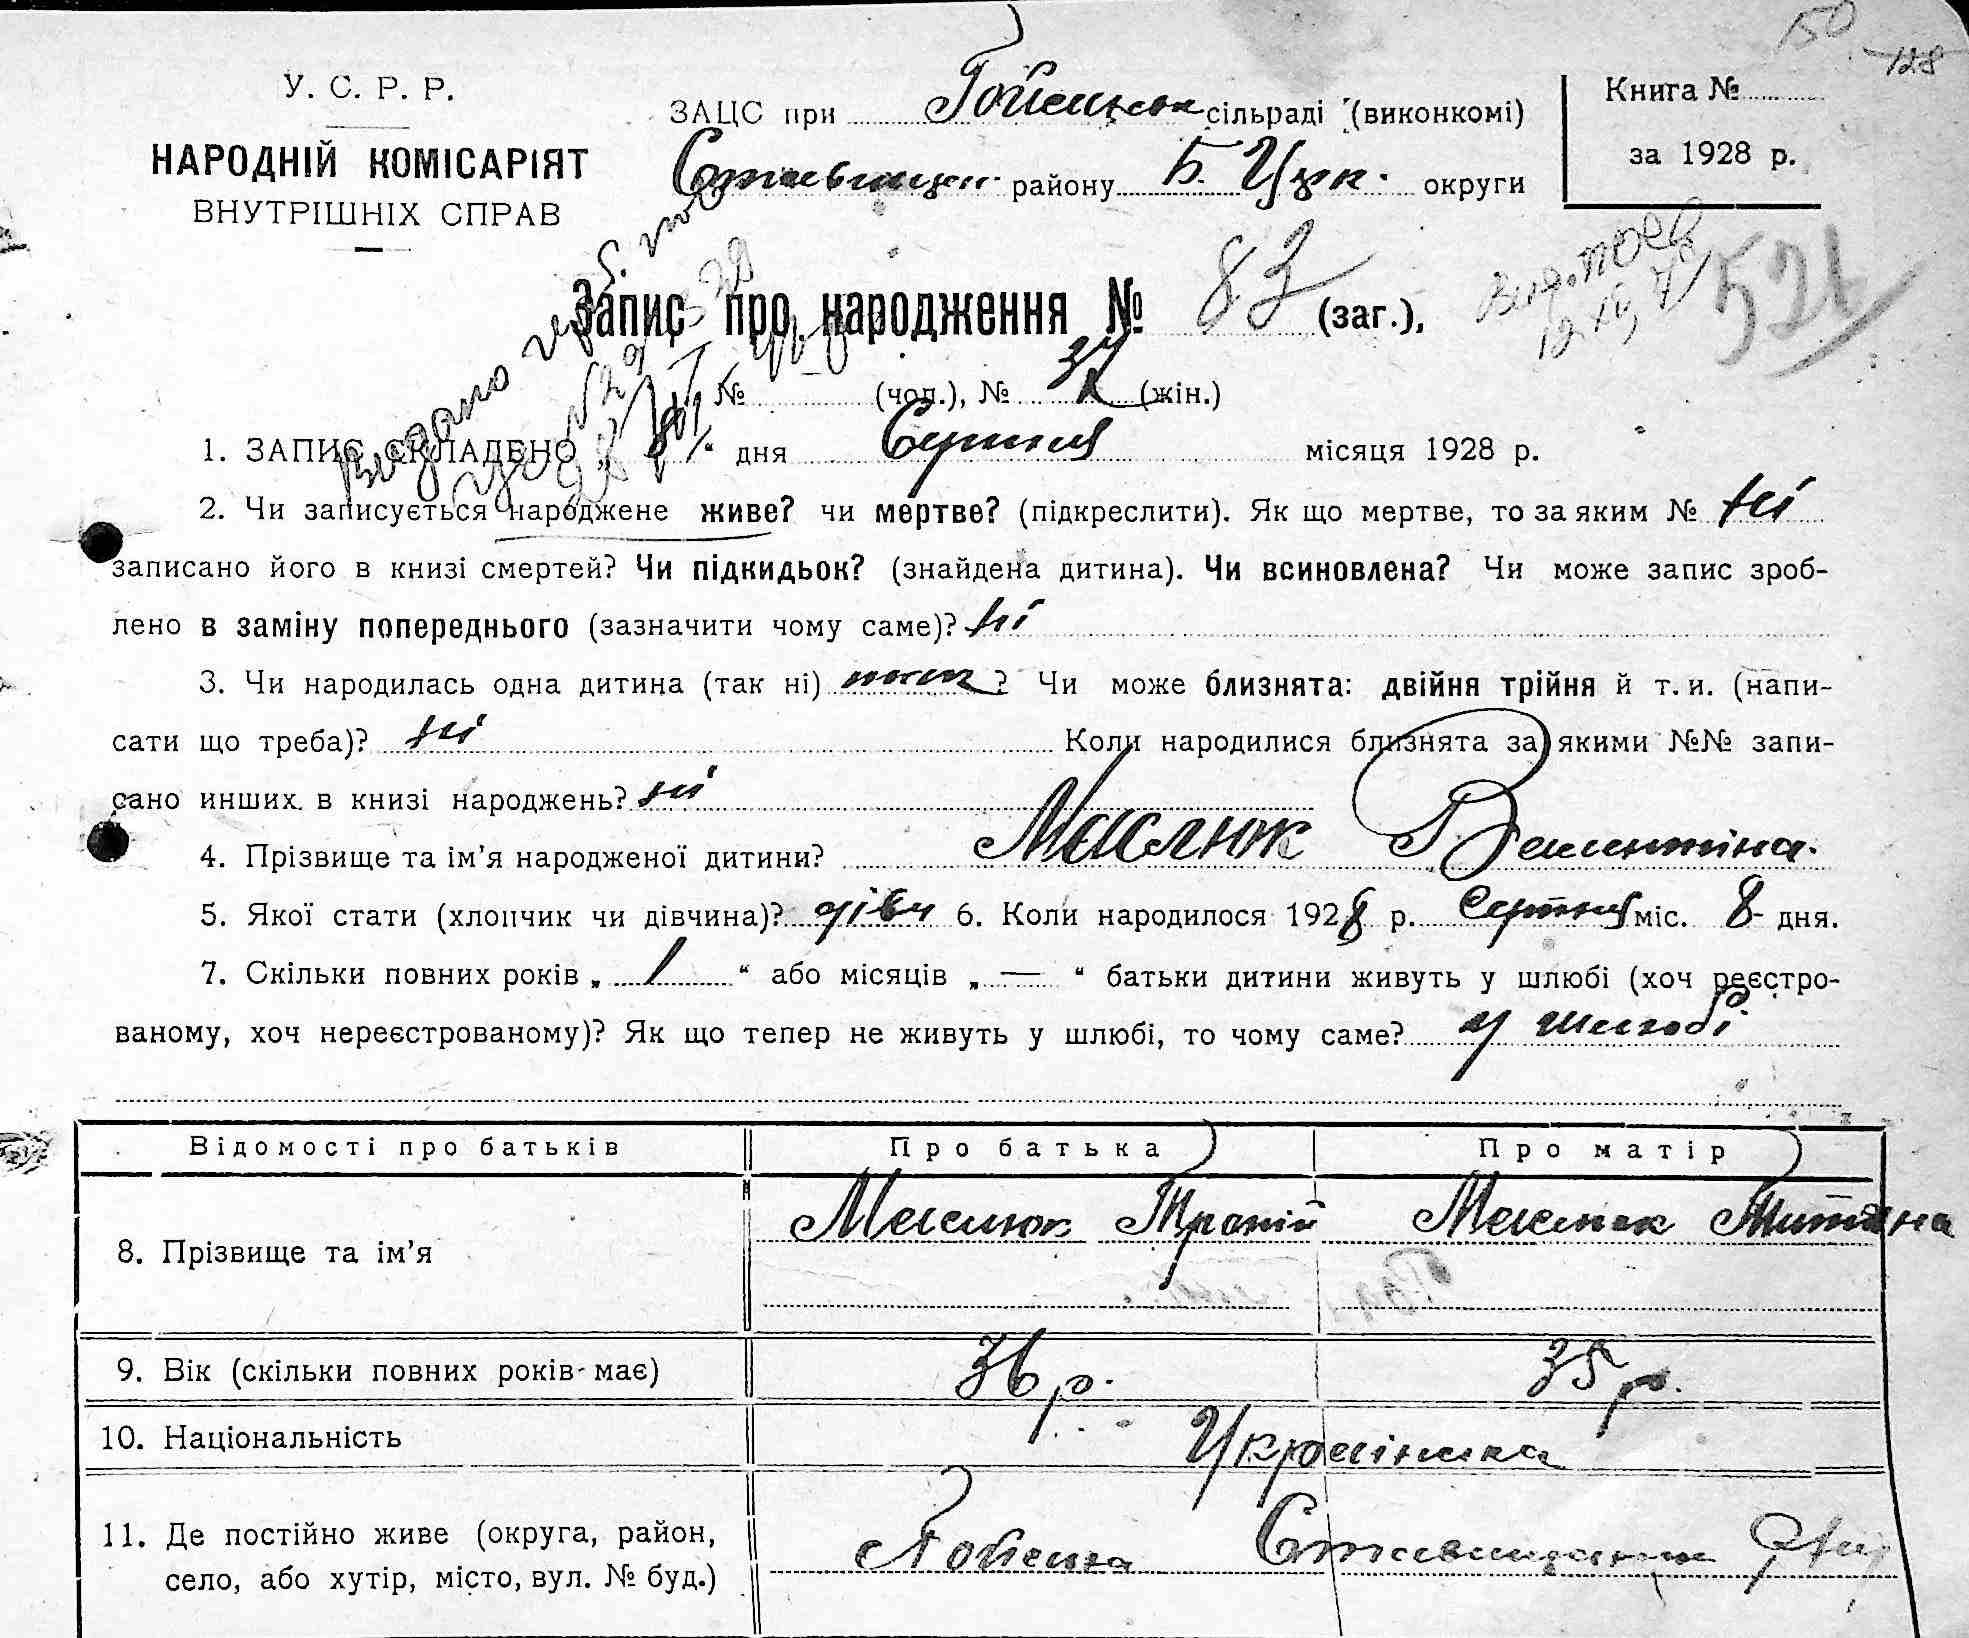 150
128
У. С. Р. Р.
НАРОДНІЙ КОМІСАРІЯТ
ВНУТРІШНІХ СПРАВ
ЗАЦС при Гойєцьк сільраді (виконкомі)
Ставищен. району Б. Церк. округи
Книга №
за 1928 р.
Запис про народження № 83 (заг.),
Вид. 12 XI 526
№ (чол.), № 37 (жін.)
Видано
1. ЗАПИС СКЛАДЕНО „ “ дня Серпня місяця 1928 р.
2. Чи записується народжене живе? чи мертве? (підкреслити). Як що мертве, то за яким № ні
записано його в книзі смертей? Чи підкидьок? (знайдена дитина). Чи всиновлена? Чи може запис зроб-
лено в заміну попереднього (зазначити чому саме)? ні
3. Чи народилась одна дитина (так ні) так ? Чи може близнята: двійня трійня й т. и. (напи-
сати що треба)? ні Коли народилися близнята за якими №№ запи-
сано инших в книзі народжень? ні
4. Прізвище та ім’я народженої дитини? Маслюк Валентіна.
5. Якої стати (хлопчик чи дівчина)? дівч 6. Коли народилося 1928 р. Серпня міс. 8 дня.
7. Скільки повних років „ 1 “ або місяців „ — “ батьки дитини живуть у шлюбі (хоч реєстро-
ваному, хоч нереєстрованому)? Як що тепер не живуть у шлюбі, то чому саме? у шлюбі
Відомості про батьків Про батька Про матір
8. Прізвище та ім’я Маслюк Маслюк Титяна
9. Вік (скільки повних років має) 36 р. 35 р.
10. Національність Українка
11. Де постійно живе (округа, район,
село, або хутір, місто, вул. № буд.)